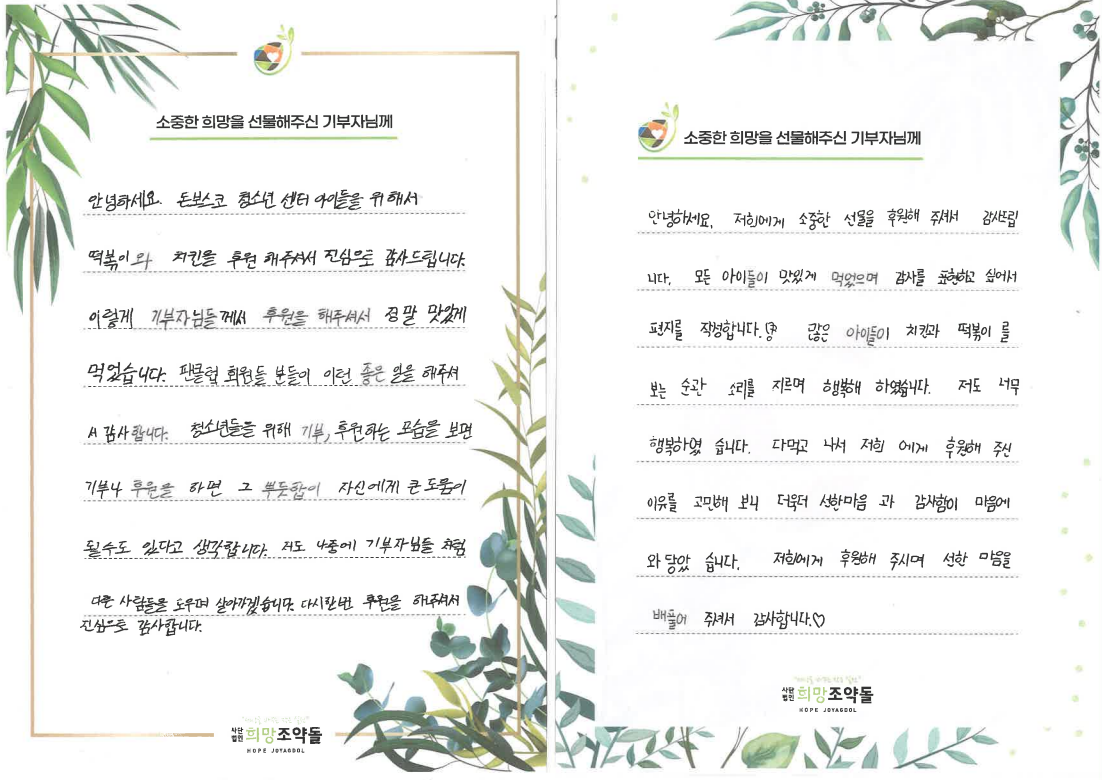 소중한 희망을 선물해주신 기부자님께
안녕하세요. 돈보스코 청소년 센터 아이들을 위해서
떡볶이와 치킨을 후원 해주셔서 진심으로 감사드립니다.
이렇게 기부자님들께서 후원을 해주셔서 정말 맛있게
먹었습니다. 팬클럽 회원들 분들이 이런 좋은 일을 해주셔
서 감사합니다. 청소년들을 위해 기부, 후원하는 모습을 보면
기부나 후원을 하면 그 뿌듯함이 자신에게 큰 도움이
될수도 있다고 생각합니다. 저도 나중에 기부자님들 처럼
다른 사람들을 도우며 살아가겠습니다. 다시한번 후원을 해주셔서
진심으로 감사합니다.
사단
법인 희망조약돌
HOPE JOYAGDOL
소중한 희망을 선물해주신 기부자님께
안녕하세요. 저희에게 소중한 선물을 후원해 주셔서 감사드립
니다. 모든 아이들이 맛있게 먹었으며 감사를 표현하고 싶어서
편지를 작성합니다. 많은 아이들이 치킨과 떡볶이 를
보는 순간 소리를 지르며 행복해 하였습니다. 저도 너무
행복하였 습니다. 다먹고 나서 저희 에게 후원해 주신
이유를 고민해 보니 더욱더 선한마음 과 감사함이 마음에
와 닿았 습니다. 저희에게 후원해 주시며 선한 마음을
배풀어 주셔서 감사합니다.♡
사단
법인 희망조약돌
HOPE JOYAGDOL